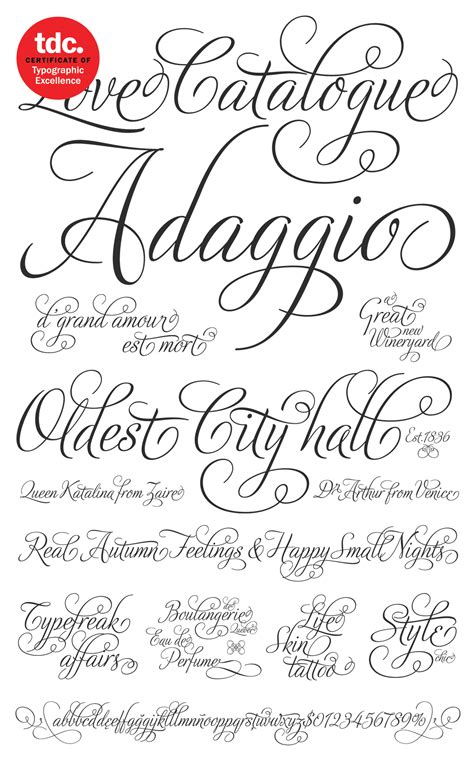 tdc.
CERTIFICATE OF
Typographic
Excellence
Love Catalogue
Adaggio
d'grand amour
est mort
a
Great
new
Wineryard
Oldest City hall
Est.1836
Queen Katalina from Zaire
Dr. Arthur from Venice
Real Autumn Feelings & Happy Small Nights
Typefreak
affairs
de
Boulangerie
Quebec
Eau de
Perfume
Life
Skin
tattoo
Style
chic